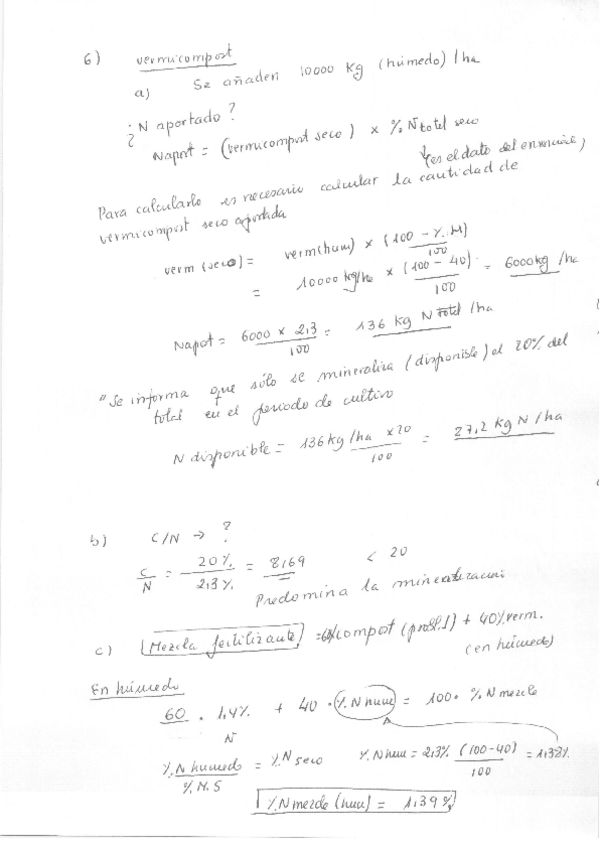 6) vermicompost
a) Se añaden 10000 Kg (húmedo) /ha
¿N aportado?
Naport = (vermicompost seco) x % N total seco
(es el dato del enunciado)
Para calcularlo es necesario calcular la cantidad de
vermicompost seco aportada
verm (seco) = verm(hum) x (100 - % H) / 100
= 10000 kg/ha x (100 - 40) / 100 = 6000 kg /ha
Napot = 6000 x 2,3 / 100 = 136 kg N total /ha
"Se informa que sólo se mineraliza (disponible) el 20% del
total en el periodo de cultivo
N disponible = 136 kg /ha x 20 / 100 = 27,2 kg N /ha
b) C/N → ?
C/N = 20% / 2,3% = 8,69 < 20
Predomina la mineralización
c) Mezcla fertilizante = 60% compost (probl. 1) + 40% verm.
(en húmedo)
En húmedo
60 · 1,4% + 40 · (% N hum) = 100 · % N mezcle
N
% N humedo / % M.S = % N seco % N hum = 2,3% (100-40) / 100 = 1,38%
% N mezcle (hum) = 1,39 %